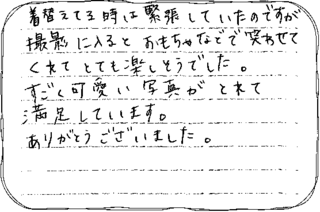 着替えてる時は緊張していたのですが
撮影に入るとおもちゃなどで笑わせて
くれてとても楽しそうでした。
すごく可愛い写真がとれて
満足しています。
ありがとうございました。